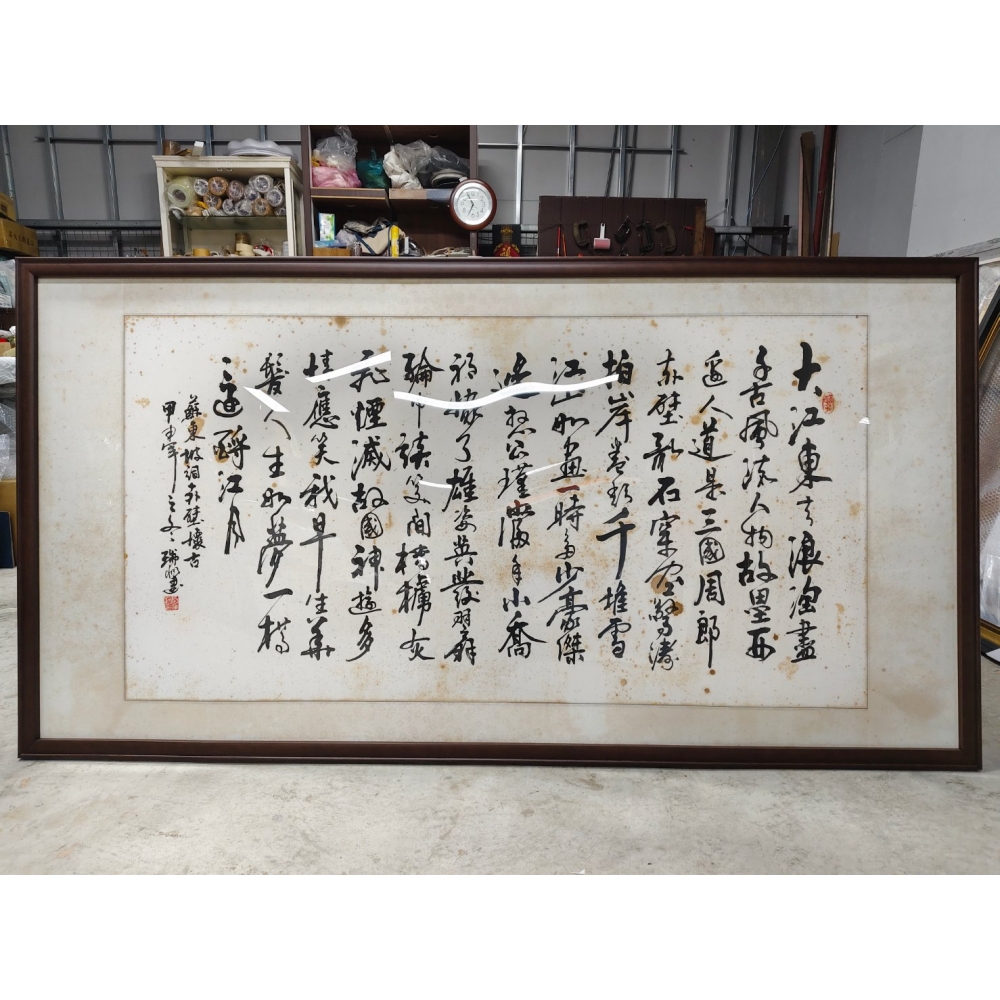 大江東去浪淘盡
千古風流人物故壘西
邊人道是三國周郎
赤壁亂石穿空驚濤
拍岸卷起千堆雪
江山如畫一時多少豪傑
遙想公瑾當年小喬
初嫁了雄姿英發羽扇
綸巾談笑間檣櫓灰
飛煙滅故國神遊多
情應笑我早生華
髮人生如夢一樽
還酹江月
蘇東坡詞赤壁懷古
甲申年之冬瑞書